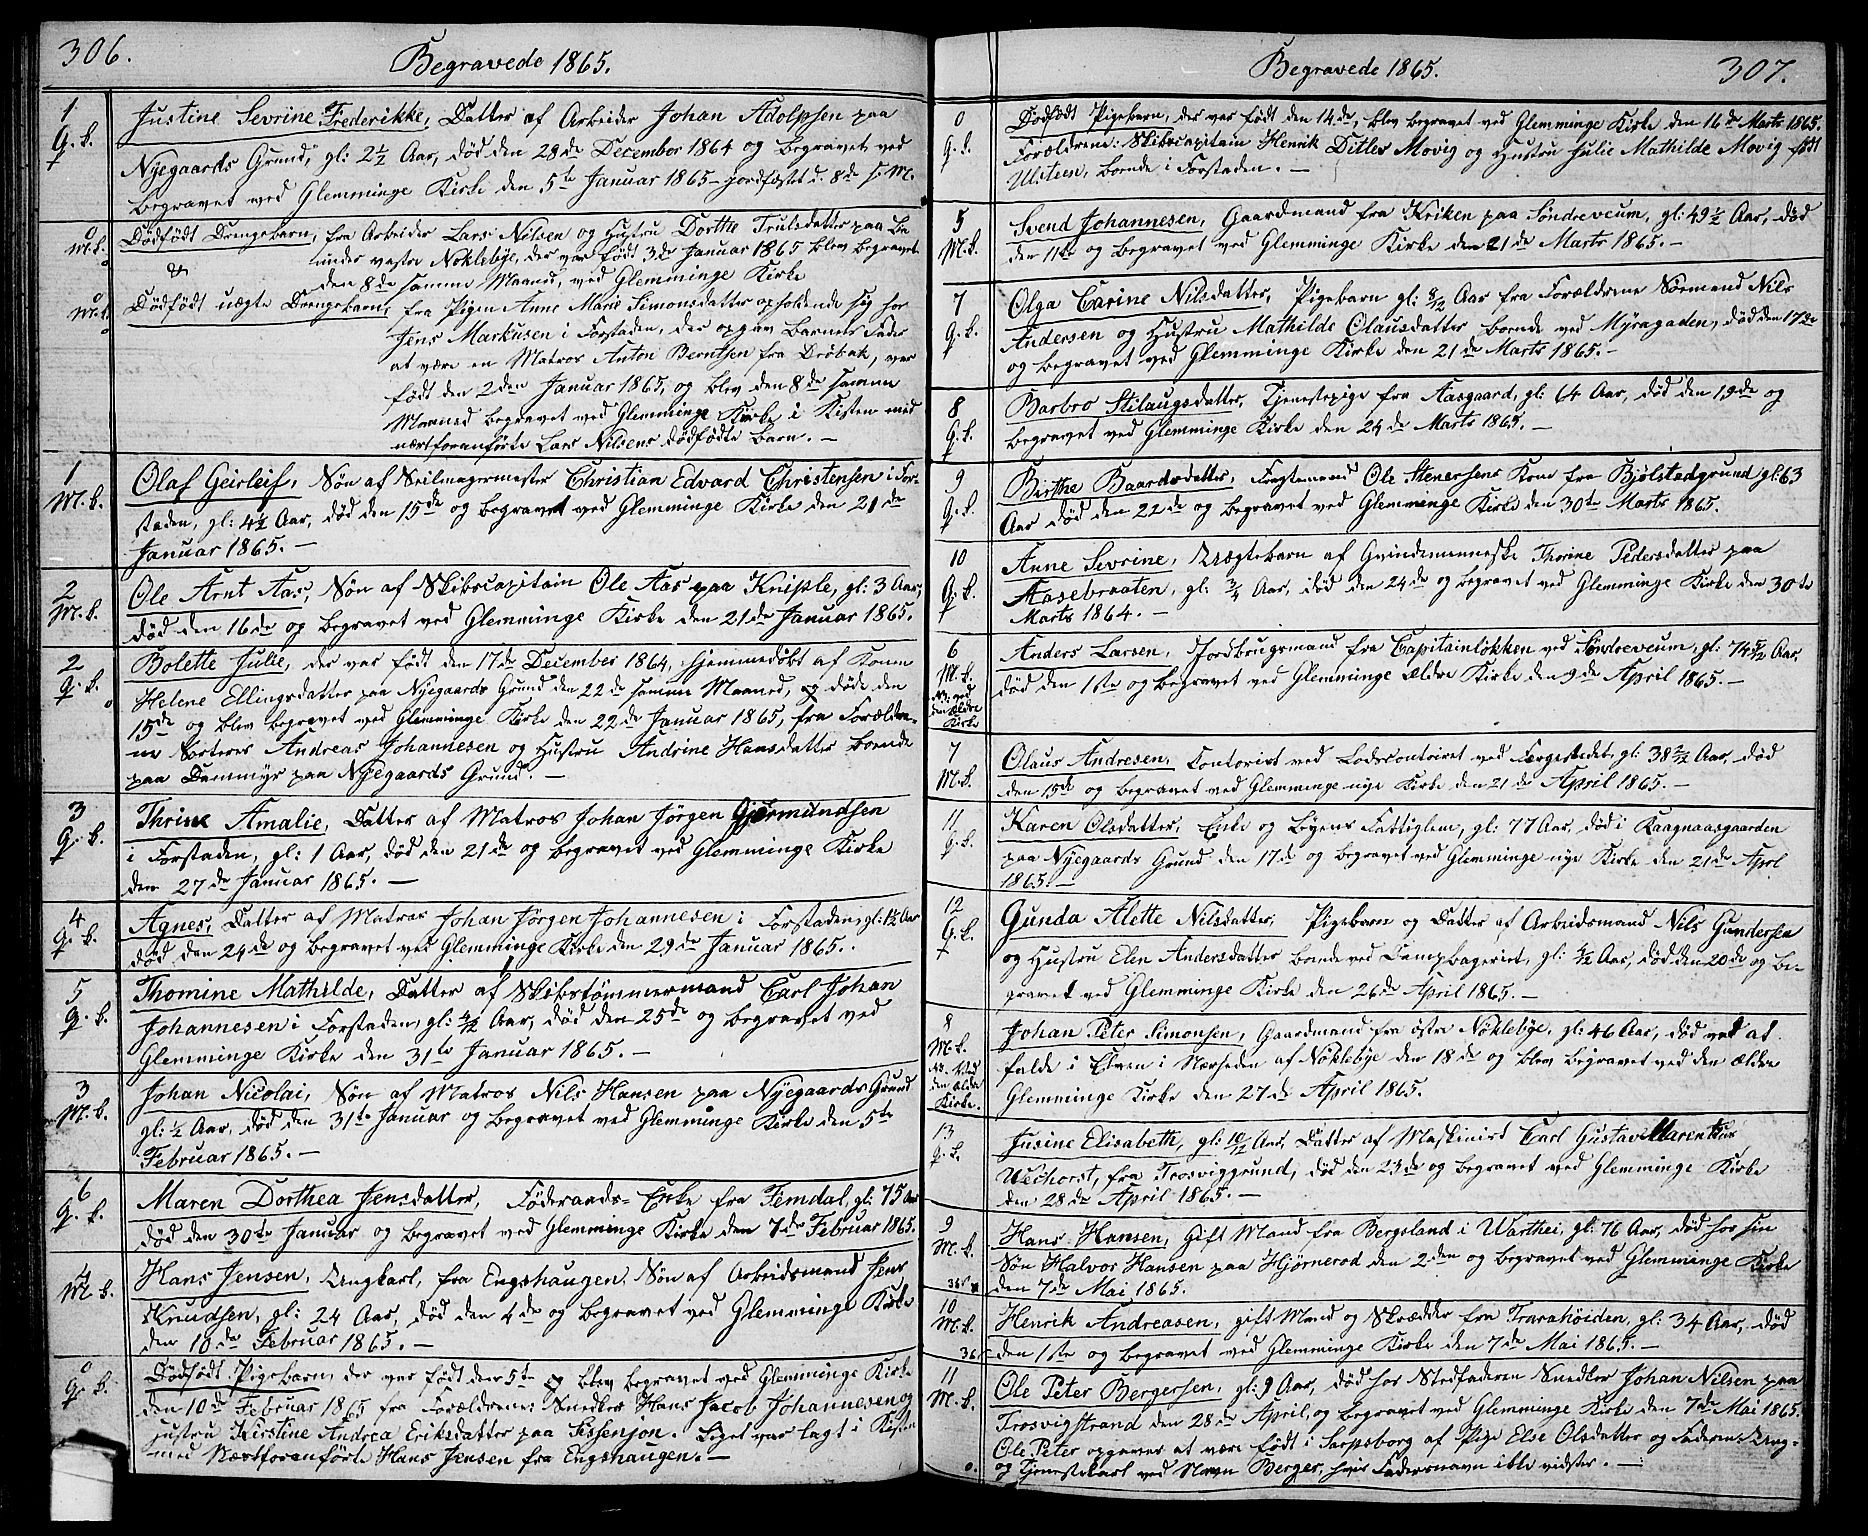 306.
Begravede 1865.
1
Q. k.
Justine Sevrine Frederikke, Datter af Arbeider Johan Adolpsen paa
Nyegaards Grund, gl: 2½ Aar, død den 28de December 1864 og begravet ved
begravet ved Glemminge Kirke den 5te Januar 1865 – jordfæstet d. 8de s. M.
0
M. k.
Dødfødt Drengebarn, fra Arbeider Lars Nilsen og Hustru Dorthe Trulsdatter paa
under vestre Noklebye, der var født 3de Januar 1865 blev begravet
den 8de samme Maaned, ved Glemminge Kirke
&
0
M. k.
Dødfødt uægte Drengebarn, fra Pigen Anne Marie Simonsdatter opholdende sig hos
Jens Markusen i Forstaden, der opgav Barnets Fader
at være en Matros Anton Berntsen fra Drøbak, var
født den 2den Januar 1865, og blev den 8de samme
Maaned begravet ved Glemminge Kirke i Kisten med
næstforanførte Lars Nilsens dødfødte Barn. –
1
M. k.
Olaf Geirleif, Søn af Seilmagermester Christian Edvard Christensen i For-
staden, gl: 4½ Aar, død den 15de og begravet ved Glemminge Kirke den 21de
Januar 1865. –
2
M. k.
Ole Arnt Aas, Søn af Skibscapitain Ole Aas paa Knipple, gl: 3 Aar,
død den 16de og begravet ved Glemminge Kirke den 21de Januar 1865.
2
Q. k.
Bolette Julie, der var født den 17de December 1864, hjemmedøbt af Konen
Helene Ellingsdatter paa Nyegaards Grund den 22de samme Maaned, og døde den
15de og blev begravet ved Glemminge Kirke den 22de Januar 1865, fra Forældre-
ne Sorterer Andreas Johannesen og Hustru Andrine Hansdatter boende
paa Dammyr paa Nyegaards Grund. –
3
Q. k.
Thrine Amalie, Datter af Matros Johan Jørgen Gjermundsen
i Forstaden, gl: 1 Aar, død den 21de og begravet ved Glemminge Kirke
den 27de Januar 1865. –
4
Q. k.
Agnes, Datter af Matros Johan Jørgen Johannesen i Forstaden, gl: 1½ Aar
død den 24de og begravet ved Glemminge Kirke den 29de Januar 1865.
5
Q. k.
Thomine Mathilde, Datter af Skibstømmermand Carl Johan
Johannesen i Forstaden, gl: 4/12 Aar, død den 25de og begravet ved
Glemminge Kirke den 31te Januar 1865. –
3
M. k.
Johan Nicolai, Søn af Matros Nils Hansen paa Nyegaards Grund
gl: ½ Aar, død den 31te Januar og begravet ved Glemminge Kirke den 5te
Februar 1865. –
6
Q. k.
Maren Dorthea Jensdatter, Føderaads-Enke fra Femdal, gl: 75 Aar
død den 30te Januar og begravet ved Glemminge Kirke den 7de Februar 1865.
4
M. k.
Hans Jensen, Ungkarl, fra Engshaugen, Søn af Arbeidsmand Jens
Knudsen, gl: 24 Aar, død den 4de og begravet ved Glemminge Kirke
den 10de Februar 1865. –
0
Q. k.
Dødfødt Pigebarn, der var født den 5te og blev begravet ved Glemminge Kirke
den 10de Februar 1865 fra Forældrene: Snedker Hans Jacob Johannesen og
Hustru Kirstine Andrea Eriksdatter paa. Liget var lagt i Kisten
med Næstforanførte Hans Jensen fra Engshaugen. –
Begravede 1865.
307.
0
Q. k.
Dødfødt Pigebarn, der var født den 14de, blev begravet ved Glemminge Kirke den 16de Marts 1865.
Forældrene: Skibscapitain Henrik Ditlev Movig og Hustru Julie Mathilde Movig født
Ulsteen, boende i Forstaden. –
5
M. k.
Svend Johannesen, Gaardmand fra Kriken paa Søndreveum, gl: 49½ Aar, død
den 11te og begravet ved Glemminge Kirke den 21de Marts 1865. –
7
Q. k.
Olga Carine Nilsdatter, Pigebarn gl: 8/12 Aar fra Forældrene Sømand Nils
Andersen og Hustru Mathilde Olausdatter boende ved Myragaden, død den 17de
og begravet ved Glemminge Kirke den 21de Marts 1865. –
8
Q. k.
Barbro Stilaugsdatter, Tjenestepige fra Aasgaard, gl: 64 Aar, død den 19de og
begravet ved Glemminge Kirke den 24de Marts 1865. –
9
Q. k.
Birthe Baardsdatter, Ole Stenersens Kone fra Bjølstadgrund gl: 63
Aar død den 22de og begravet ved Glemminge Kirke den 30te Marts 1865.
10
Q. k.
Anne Sevrine, Uægtebarn af Qvindemenneske Thorine Pedersdatter paa
Aasebraaten, gl: ¾ Aar, død den 24de og begravet ved Glemminge Kirke den 30te
Marts 1864. –
6
M. k.
NB. ved
den ældre
Kirke
Anders Larsen, Jordbrugsmand fra Capitainløkken ved Søndreveum, gl: 74 5/12 Aar,
død den 1ste og begravet ved Glemminge ældre Kirke den 9de April 1865. –
7
M. k.
Olaus Andresen, Contorist ved Lodscontoiret ved Færgestedet, gl: 38 2/12 Aar, død
den 15de og begravet ved Glemminge nye Kirke den 21de April 1865. –
11
Q. k.
Karen Olsdatter, Enke og Byens Fattiglem, gl: 77 Aar, død i Raagnaasgaarden
paa Nyegaards Grund den 17de og begravet ved Glemminge nye Kirke den 21de Aprl
1865. –
12
Q. k.
Gunda Alette Nilsdatter, Pigebarn og Datter af Arbeidsmand Nils Gundersen
og Hustru Elen Andersdatter boende ved Dampbageriet, gl: 4/12 Aar, død den 20de og be-
gravet ved Glemminge Kirke den 26de April 1865. –
8
M. k.
NB. Ved
den ældre
Kirke.
Johan Peter Simonsen, Gaardmand fra østre Noklebye, gl: 46 Aar, død ved at
falde i Elven i Nærheden af Noklebye den 18de og blev begravet ved den ældre
Glemminge Kirke den 27de April 1865.
13
Q. k.
Jusine Elisabeth, gl: 10/12 Aar, Datter af Maskinist Carl Gustav Marentius
Wechorst, fra Trosviggrund, død den 23de og begravet ved Glemminge Kirke
den 28de April 1865. –
9
M. k.
Hans Hansen, Gift Mand fra Bergsland i Warthei, gl: 76 Aar, død hos sin
Søn Halvor Hansen paa Hjørnerød den 2den og begravet ved Glemminge Kirke
den 7de Mai 1865.
10
M. k.
Henrik Andreasen, gift Mand og Skrædder fra Trarahøiden, gl: 34 Aar, død
den 1ste og begravet ved Glemminge Kirke den 7de Mai 1865. –
11
M. k.
Ole Peter Bergersen, gl: 9 Aar, død hos Stedfaderen Snedker Johan Nilsen paa
Trosvigstrand den 28de April, og begravet ved Glemminge Kirke den 7de Mai 1865.
Ole Peter opgaves at være født i Sarpsborg af Pige Else Olsdatter og Faderen: Ung-
og Tjenestekarl ved Navn Berger, hvis Fadersnavn ikke vidstes. –